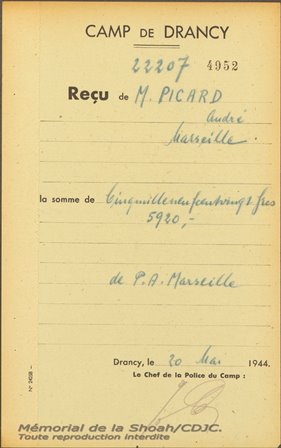 CAMP DE DRANCY
22207 4952
Reçu de M. PICARD
André
Marseille
la somme de Cinqmilleneufcentvingt frcs
5920,-
de P.A. Marseille
Drancy, le 20 Mai 1944.
Le Chef de la Police du Camp :
Mémorial de la Shoah/CDJC.
Toute reproduction interdite